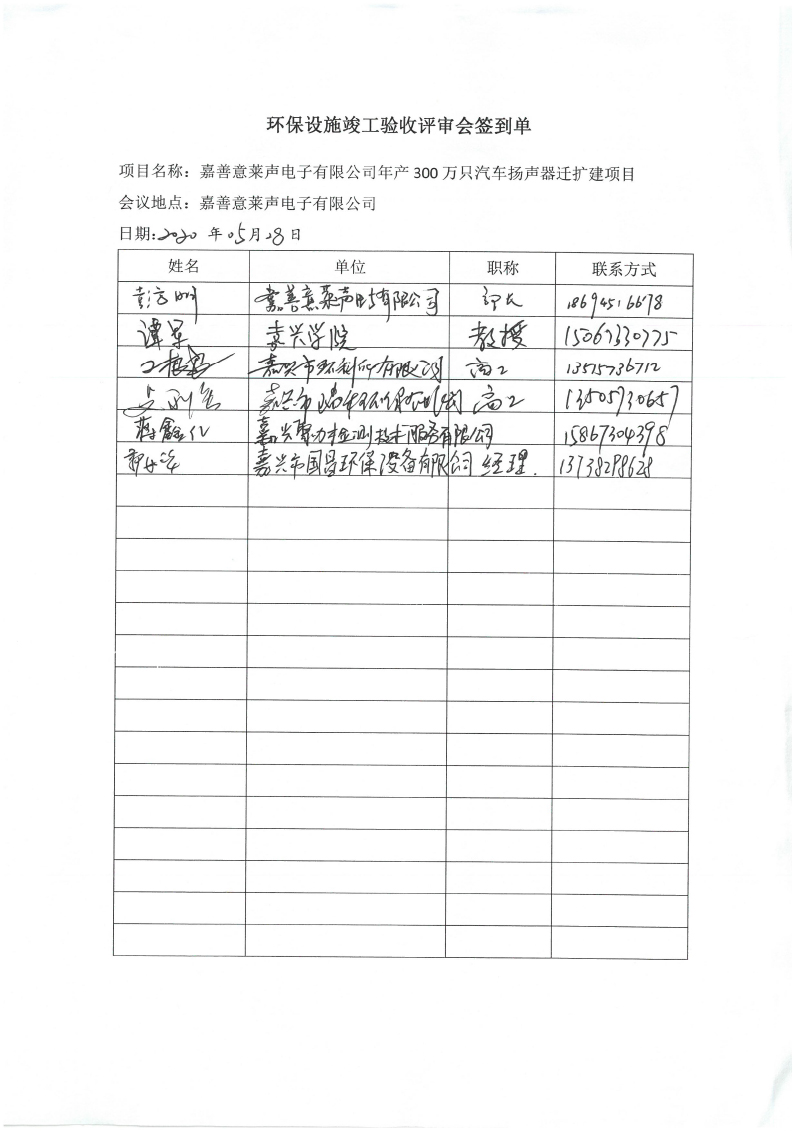 环保设施竣工验收评审会签到单
项目名称：嘉善意莱声电子有限公司年产 300 万只汽车扬声器迁扩建项目
会议地点：嘉善意莱声电子有限公司
日期:2020 年 05 月 28 日
姓名 单位 职称 联系方式
嘉善意莱声电子有限公司 18694516678
谭军 嘉兴学院 教授 15067330775
嘉兴市环科所有限公司 高工 13575736712
高工 13505730657
嘉兴聚力检测技术服务有限公司 15867304398
嘉兴市国昌环保设备有限公司 经理. 13738298628